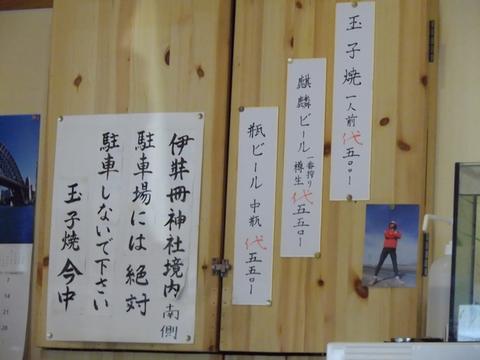 玉子焼 一人前 代五〇〇ー
麒麟ビール 一番搾り 樽生 代五五〇ー
瓶ビール 中瓶 代五五〇ー
伊弉冊神社境内南側
駐車場には絶対
駐車しないで下さい
玉子焼 今中
7
14
21
28